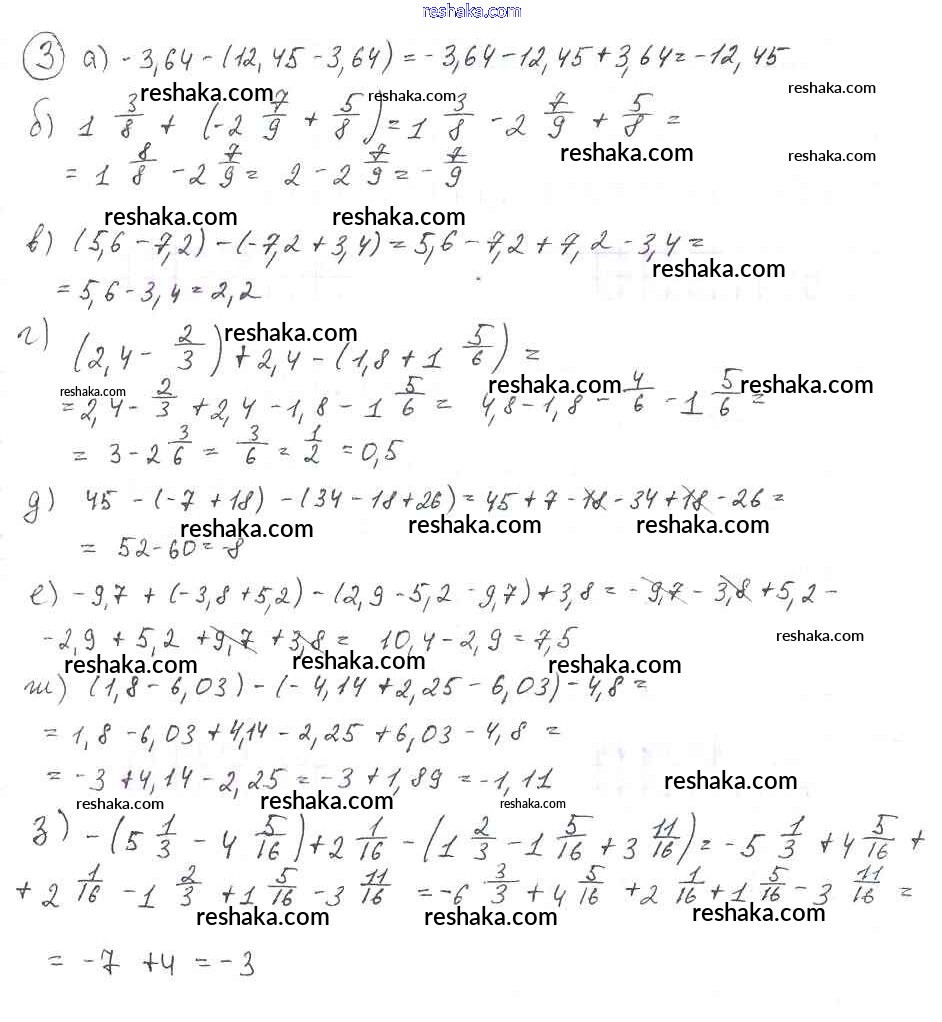 reshaka.com
3 а) -3,64 - (12,45 - 3,64) = -3,64 - 12,45 + 3,64 = -12,45
reshaka.com reshaka.com reshaka.com
б) 1 3/8 + (-2 7/9 + 5/8) = 1 3/8 - 2 7/9 + 5/8 =
reshaka.com reshaka.com
= 1 8/8 - 2 7/9 = 2 - 2 7/9 = - 7/9
reshaka.com reshaka.com
в) (5,6 - 7,2) - (-7,2 + 3,4) = 5,6 - 7,2 + 7,2 - 3,4 =
reshaka.com
= 5,6 - 3,4 = 2,2
reshaka.com
г) (2,4 - 2/3) + 2,4 - (1,8 + 1 5/6) =
reshaka.com reshaka.com reshaka.com
= 2,4 - 2/3 + 2,4 - 1,8 - 1 5/6 = 4,8 - 1,8 - 4/6 - 1 5/6 =
= 3 - 2 3/6 = 3/6 = 1/2 = 0,5
д) 45 - (-7 + 18) - (34 - 18 + 26) = 45 + 7 - 18 - 34 + 18 - 26 =
reshaka.com reshaka.com reshaka.com
= 52 - 60 = -8
е) -9,7 + (-3,8 + 5,2) - (2,9 - 5,2 - 9,7) + 3,8 = -9,7 - 3,8 + 5,2 -
-2,9 + 5,2 + 9,7 + 3,8 = 10,4 - 2,9 = 7,5
reshaka.com
reshaka.com reshaka.com reshaka.com
ж) (1,8 - 6,03) - (-4,14 + 2,25 - 6,03) - 4,8 =
= 1,8 - 6,03 + 4,14 - 2,25 + 6,03 - 4,8 =
= -3 + 4,14 - 2,25 = -3 + 1,89 = -1,11
reshaka.com
reshaka.com reshaka.com reshaka.com
з) -(5 1/3 - 4 5/16) + 2 1/16 - (1 2/3 - 1 5/16 + 3 11/16) = -5 1/3 + 4 5/16 +
+ 2 1/16 - 1 2/3 + 1 5/16 - 3 11/16 = -6 3/3 + 4 5/16 + 2 1/16 + 1 5/16 - 3 11/16 =
reshaka.com reshaka.com reshaka.com
= -7 + 4 = -3